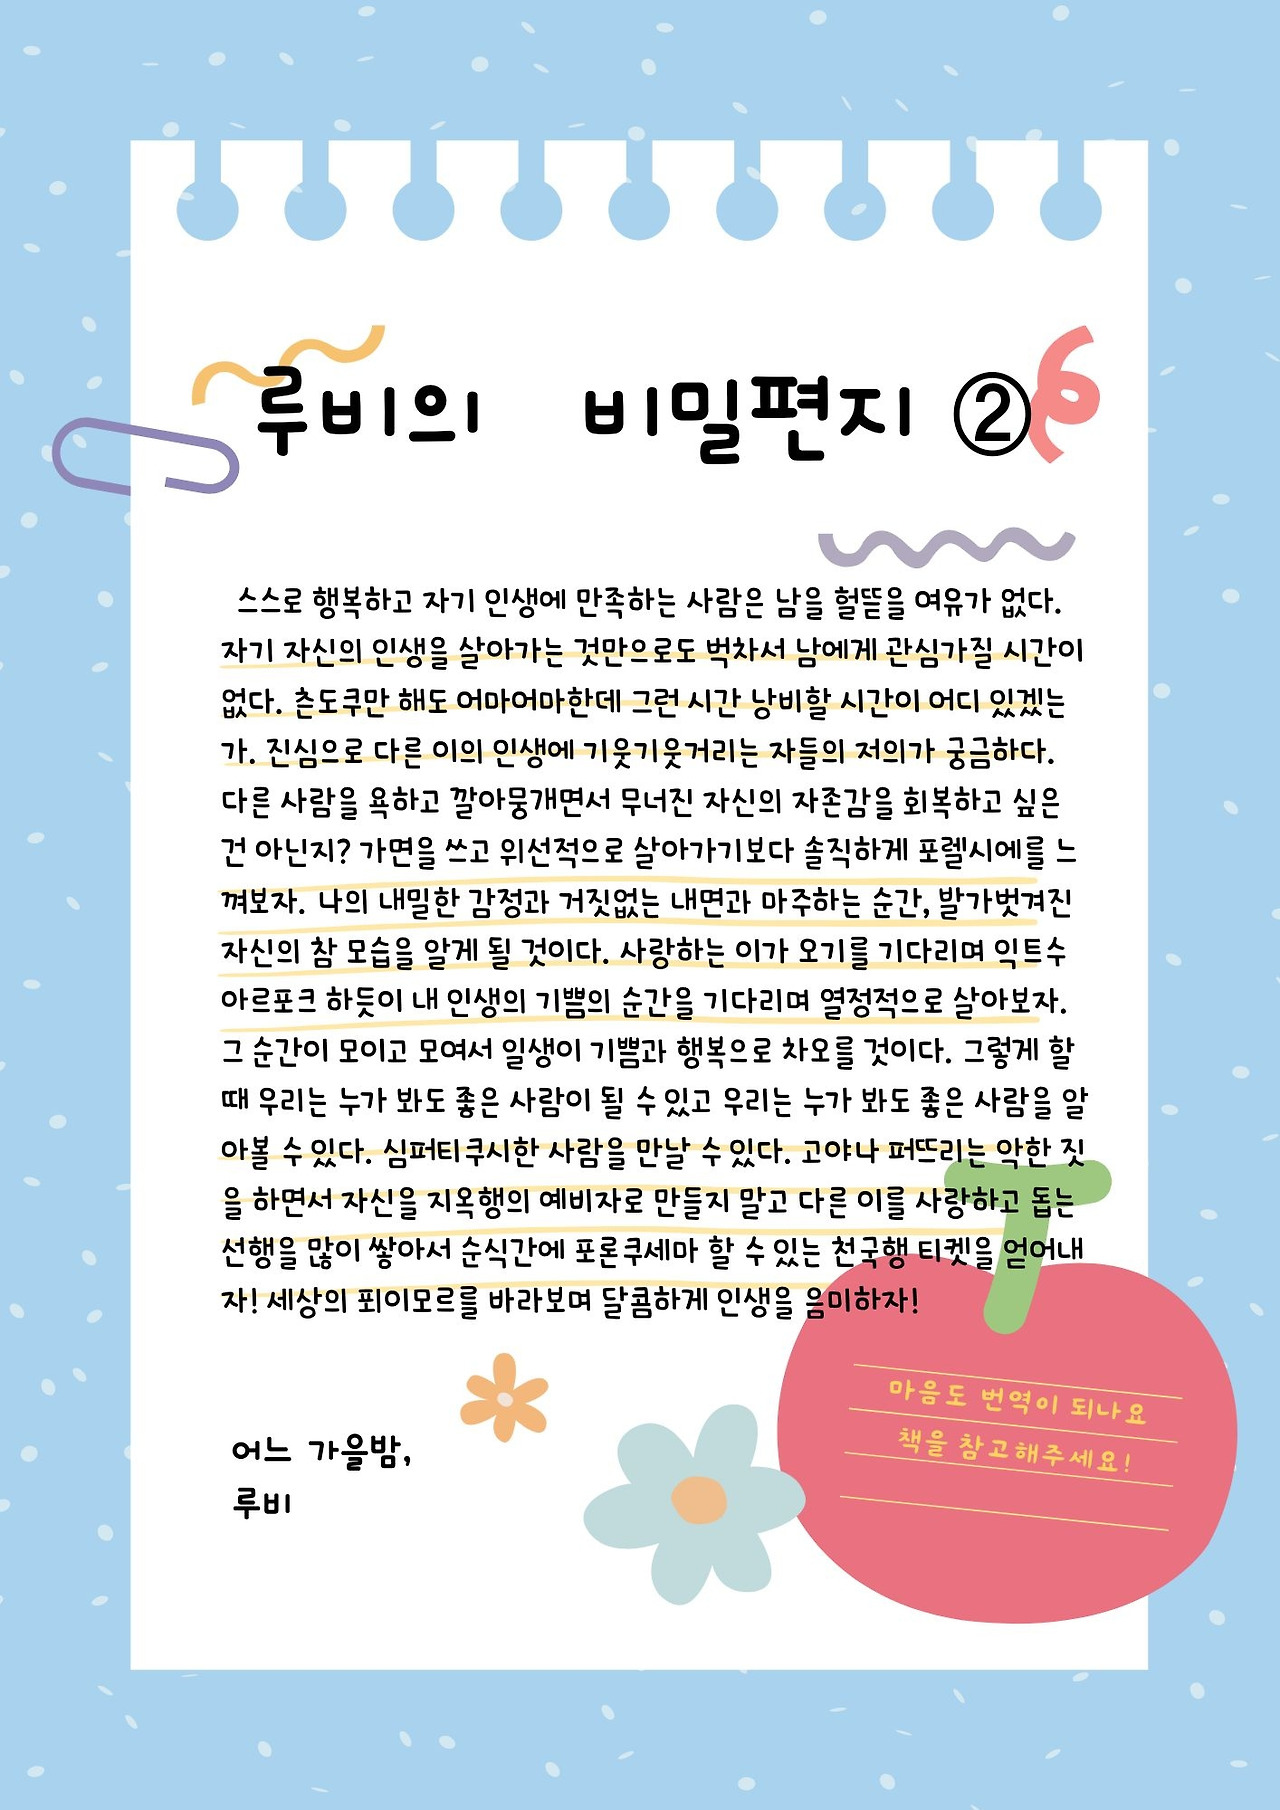 루비의 비밀편지 ②
스스로 행복하고 자기 인생에 만족하는 사람은 남을 헐뜯을 여유가 없다.
자기 자신의 인생을 살아가는 것만으로도 벅차서 남에게 관심가질 시간이
없다. 츤도쿠만 해도 어마어마한데 그런 시간 낭비할 시간이 어디 있겠는
가. 진심으로 다른 이의 인생에 기웃기웃거리는 자들의 저의가 궁금하다.
다른 사람을 욕하고 깔아뭉개면서 무너진 자신의 자존감을 회복하고 싶은
건 아닌지? 가면을 쓰고 위선적으로 살아가기보다 솔직하게 포렐시에를 느
껴보자. 나의 내밀한 감정과 거짓없는 내면과 마주하는 순간, 발가벗겨진
자신의 참 모습을 알게 될 것이다. 사랑하는 이가 오기를 기다리며 익트수
아르포크 하듯이 내 인생의 기쁨의 순간을 기다리며 열정적으로 살아보자.
그 순간이 모이고 모여서 일생이 기쁨과 행복으로 차오를 것이다. 그렇게 할
때 우리는 누가 봐도 좋은 사람이 될 수 있고 우리는 누가 봐도 좋은 사람을 알
아볼 수 있다. 심퍼티쿠시한 사람을 만날 수 있다. 고야나 퍼뜨리는 악한 짓
을 하면서 자신을 지옥행의 예비자로 만들지 말고 다른 이를 사랑하고 돕는
선행을 많이 쌓아서 순식간에 포론쿠세마 할 수 있는 천국행 티켓을 얻어내
자! 세상의 푀이모르를 바라보며 달콤하게 인생을 음미하자!
마음도 번역이 되나요
책을 참고해주세요!
어느 가을밤,
루비